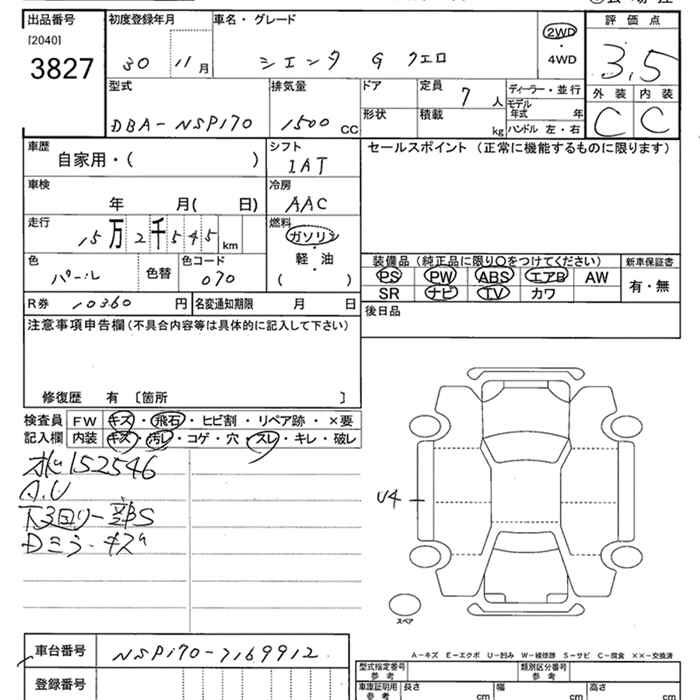 出品番号 初度登録年月 車名・グレード 評価点
[2040]
3827 30 11月 シエンタ G クエロ 2WD・4WD 3.5
型式 排気量 ドア 定員 7人 ディーラー・並行 外装 内装
DBA-NSP170 1500CC 形状 積載 kg モデル年式 年 ハンドル 左・右 C C
車歴 自家用・( ) シフト 1AT セールスポイント (正常に機能するものに限ります)
車検 年 月( 日) 冷房 AAC
走行 15万2千545km 燃料 ガソリン
軽・油
( )
色 パール 色替 色コード 070
装備品 (純正品に限り○をつけてください) 新車保証書
PS PW ABS エアB AW 有・無
SR ナビ TV カワ
R券 10360円 名変通知期限 月 日 後日品
注意事項申告欄 (不具合内容等は具体的に記入して下さい)
修復歴 有 〔箇所 〕
検査員 FW キズ・飛石・ヒビ割・リペア跡・×要
記入欄 内装 キズ・汚レ・コゲ・穴・スレ・キレ・破レ
152546
A.U
下回り一部S
Dミラーキズ
U4
スペア
車台番号 NSP170-7169912
A-キズ E-エクボ U-凹み W-補修跡 S-サビ C-腐食 ××-交換済
登録番号
型式指定番号 参考 類別区分番号 参考
車庫証明用 参考 長さ cm 幅 cm 高さ cm